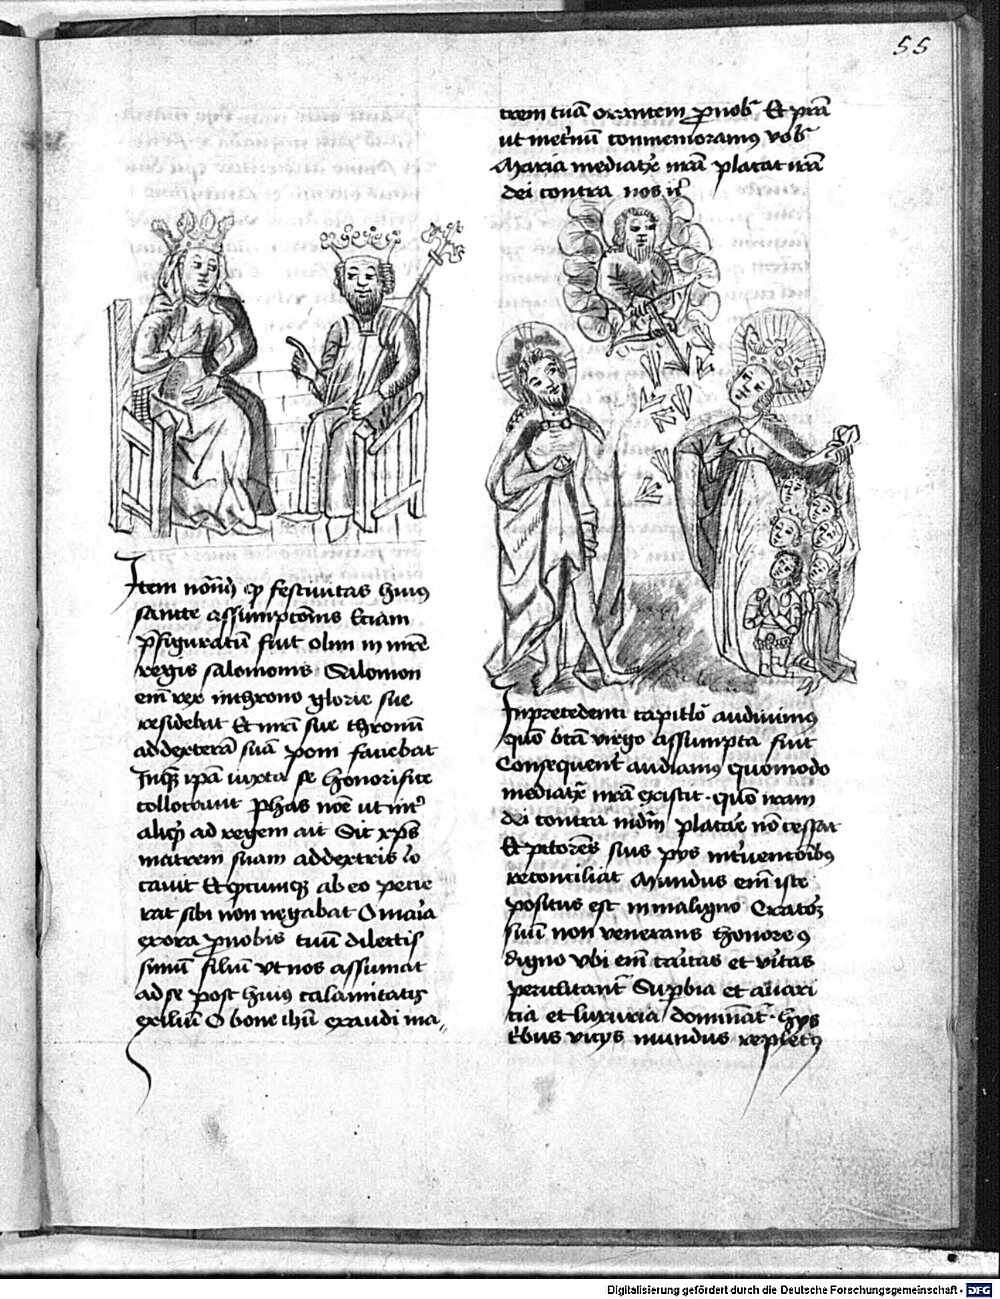 55
Item nōnd' ꝙ festiuitas huiꝰ
sancte assumpcōnis Eciam
p̄figuratū fuit olim in mr̄e
regis salomonis Salomon
em̄ rex in throno glorie sue
residebat Et mr̄i sue thronū
ad dexterā suā poni faciebat
Inqꝫ ip̄am iuxta se honorifice
collocauit
aliqͥd ad regem ait Sic xp̄s
matrem suam ad dextris lo
cauit Et qͥcumqꝫ ab eo pecie
rat sibi non negabat O maīa
exora ꝓ nobis tuū dilectis
simū filiū vt nos assumat
ad se post huiꝰ calamitatis
exiliū O bone ih̄u exaudi ma„
trem tuā orantem ꝓ nob̄ Et p̄rā
Maria mediatͥx nr̄ā placat irā
dei contra nos
In precedenti capitl̄o audiuimꝰ
quō btā virgo assumpta fuit
Consequent̄ audiamꝰ quomodo
mediatͥx nr̄ā existit · quō iram
dei contra mūdū placāe nō cessat
Et pctōres suis pijs int̄uentōibꝰ
reconciliat Mundus em̄ iste
positus est in maligno Creatoꝫ
suū non venerans honore
digno vbi em̄ caītas et vītas
periclitant᷑ Suꝑbia et auari
cia et luxuria domināt᷑ · hijs
tͥbus vicijs mundus repletꝰ
Digitalisierung gefördert durch die Deutsche Forschungsgemeinschaft - DFG